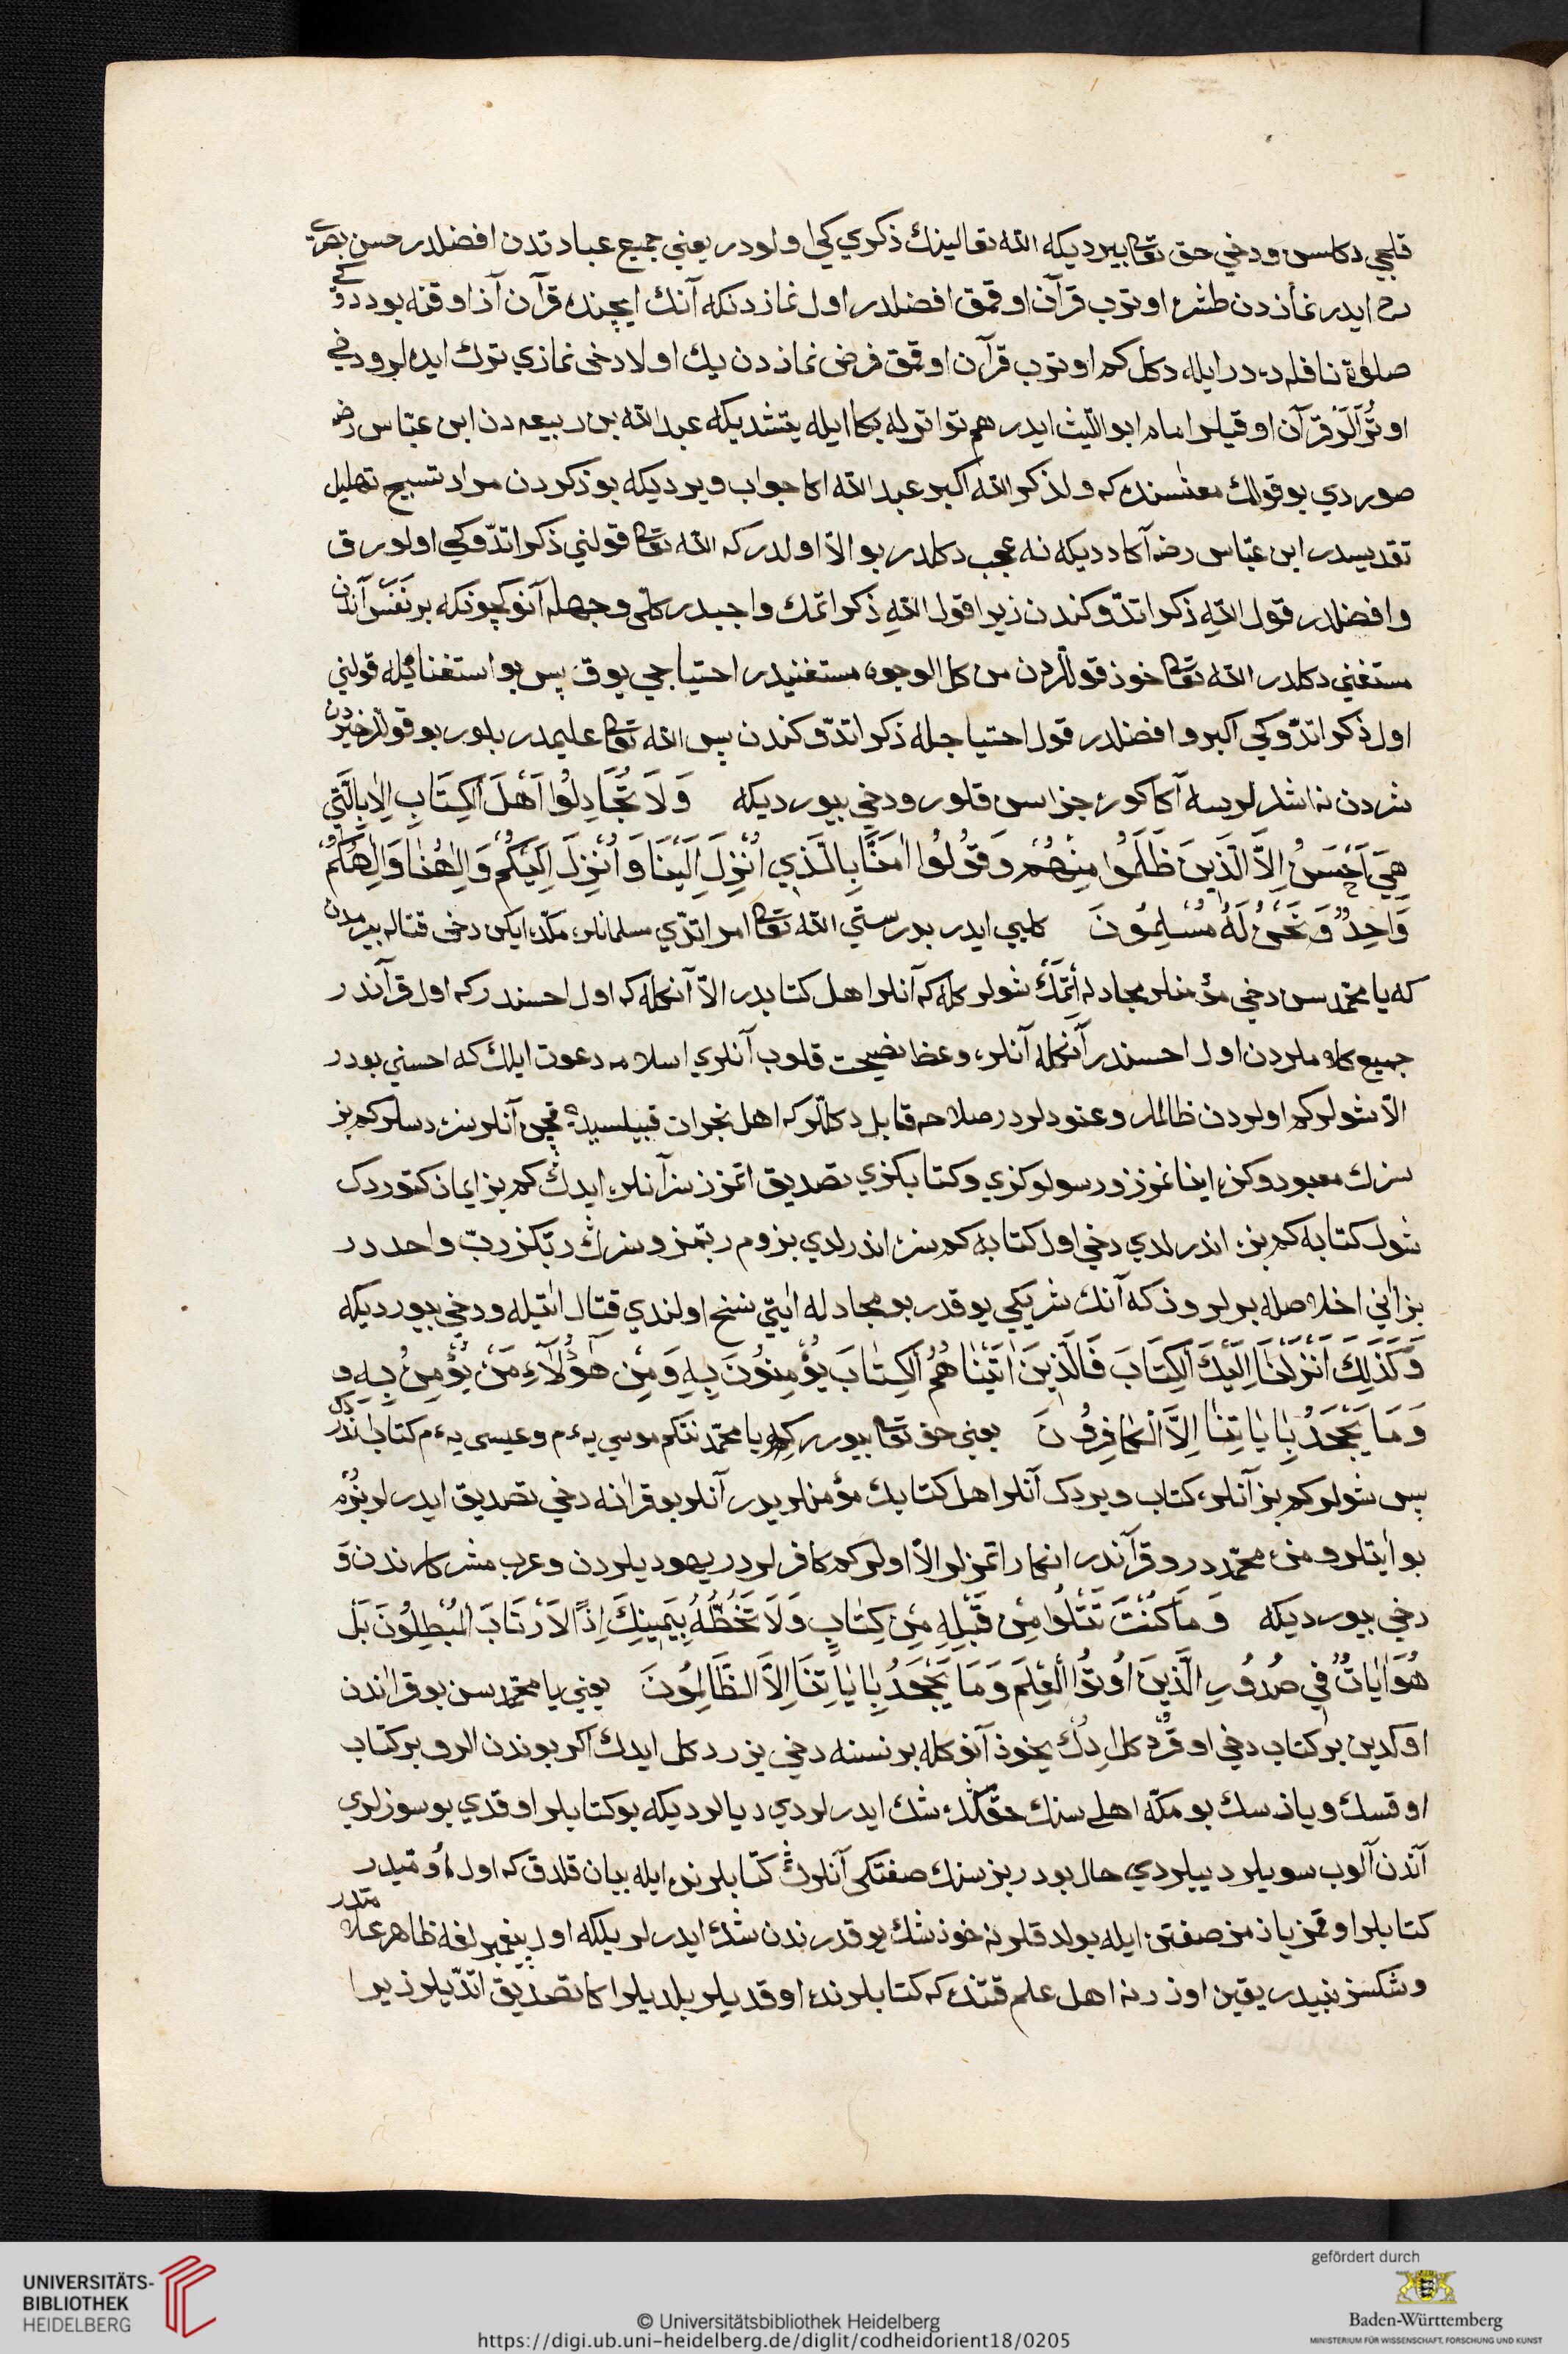 قلجي دكلسن ودخي حق تعا بيرديكه الله تعالينك ذكري يكي اولودر يعني جميع عباد تدن افضلدر حسن بصري
رح ايدر نمازدن طشره اوترب قرآن اوقمق افضلدر اول نمازدنكه آنك ايچنده قرآن آز اوقنه بو ددوكي
صلوة نافله ده در ايله دكل كم اوترب قرآن اوقمق فرض نمازدن يك اولا دخى نمازي ترك ايده لر ودخي
اوترلر قرآن اوقيلر امام ابو الليث ايدر هم تواترله بكا ايله يتشديكه عبد الله بن ربيعه دن ابن عباس رضه
صوردي بو قولك معنسنده كه ولذكر الله اكبر عبد الله اكا جواب ويرديكه بو ذكردن مراد تسبيح تهليل
تقديسدر ابن عباس رضه آكا دديكه نه عجب دكلدر بو الا اولدركه الله تعا قولني ذكر اتدوكي اولورق
وافضلدر قول الله ذكر اتدوكندن زيرا قول الله ذكر اتمك واجبدر كلى وجهله آنوكچونكه بر نفس آندن
مستغني دكلدر الله تعا خوذ قوللردن من كل الوجوه مستغنيدر احتياجي يوق پس بو استغنائيله قولني
اول ذكر اتدوكي اكبر وافضلدر قول احتياجله ذكر اتدوكندن پس الله تعا عليمدر بلور بو قوللر خيردن
شردن نه اشلرلرسه آكا كوره جزاسن قلور ودخي بيورديكه وَلَا تُجَادِلُوا اَهْلَ الْكِتَابِ اِلَّا بِالَّتِي
هِيَ اَحْسَنُ اِلَّا الَّذِينَ ظَلَمُوا مِنْهُمْ وَقُولُوا اٰمَنَّا بِالَّذِي اُنْزِلَ اِلَيْنَا وَاُنْزِلَ اِلَيْكُمْ وَاِلٰهُنَا وَاِلٰهُكُمْ
وَاحِدٌ وَنَحْنُ لَهُ مُسْلِمُونَ كلبي ايدر بدرستي الله تعا امر اتدي مسلمانلره مكده ايكن دخى قتاله بيرمدن
كه يا محمد سن دخي مؤمنلر مجادله اتمك شولر كله كه آنلر اهل كتابدر الا آنكله كه اول احسندركه اول قرآندر
جميع كلاملردن اول احسندر آنكله آنلره وعظ نصيحت قلوب آنلري اسلامه دعوت ايلك كه احسني بودر
الا شولر كم اولردن ظالملر وعنودلردر صلاحه قابل دكللركه اهل نجران قبيلسيدر قچن آنلر سزه دسلر كم بز
سزك معبودوكزه اينانمزز ورسولوكزي وكتابكزي تصديق اتمزز سز آنلره ايدك كم بز ايمان كتوردك
شول كتابه كم بزه اندرلدي دخي اول كتابه كم سزه اندرلدي بزوم ربمز وسزك ربكز رب واحددر
بز اني اخلاصله برلروزكه آنك شريكي يوقدر بو مجادله ايتي نسخ اولندي قتال ايتيله ودخي بيورديكه
وَكَذٰلِكَ اَنْزَلْنَا اِلَيْكَ الْكِتَابَ فَالَّذِينَ اٰتَيْنَاهُمُ الْكِتَابَ يُؤْمِنُونَ بِهِ وَمِنْ هٰؤُلَاءِ مَنْ يُؤْمِنُ بِهِ و
وَمَا يَجْحَدُ بِاٰيَاتِنَا اِلَّا الْكَافِرُونَ يعني حق تعا بيورر كه يا محمد نتكم موسي يه ءم وعيسى يه ءم كتاب اندردك
پس شولر كم بز آنلره كتاب ويردك آنلر اهل كتابك مؤمنلريدر آنلر بو قرانه دخي تصديق ايدرلر بزم
بو ايتلرومزه محمددر وقرآندر انكار اتمزلر الا اولر كم كافرلردر يهوديلردن وعرب مشركلرندن و
دخي بيورديكه وَمَا كُنْتَ تَتْلُوا مِنْ قَبْلِهِ مِنْ كِتَابٍ وَلَا تَخُطُّهُ بِيَمِينِكَ اِذًا لَارْتَابَ الْمُبْطِلُونَ بَلْ
هُوَ اٰيَاتٌ فِي صُدُورِ الَّذِينَ اُوتُوا الْعِلْمَ وَمَا يَجْحَدُ بِاٰيَاتِنَا اِلَّا الظَّالِمُونَ يعني يا محمد سن بو قراندن
اوكدين بر كتاب دخي اوقر دكل ايدك يخوذ آنوكله بر نسنه دخي يزر دكل ايدك اكر بوندن الرو بر كتاب
اوقسك وياذسك بو مكه اهلى سنك حقكده شك ايدرلردي ديلرديكه بو كتابلر اوقدي بو سوزلري
آندن آلوب سويلر ديبلردي حال بودر بز سنك صفتكى آنلرك كتابلرنده ايله بيان قلدق كه اول أوميدر
كتابلر اوقمز يازمز صفتن ايله بولدقلرنه خوذ شك يوقدر ندن شك ايدرلر بلكه اول پيغمبرلغه ظاهر علامتدر
وشكسز نبيدر يقين اوزرنه اهل علم قتنده كه كتابلرنده اوقديلر بلديلر اكا تصديق اتديلر زيرا
UNIVERSITÄTS-
BIBLIOTHEK
HEIDELBERG
© Universitätsbibliothek Heidelberg
https://digi.ub.uni-heidelberg.de/diglit/codheidorient18/0205
gefördert durch
Baden-Württemberg
MINISTERIUM FÜR WISSENSCHAFT, FORSCHUNG UND KUNST